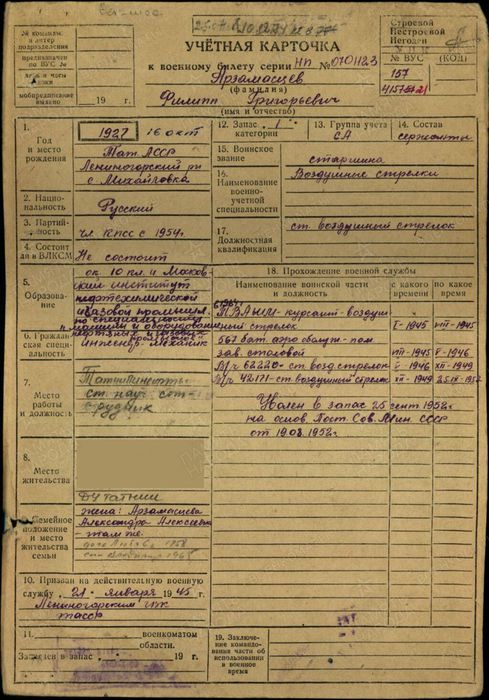 УЧЁТНАЯ КАРТОЧКА
к военному билету серии НП № 0701123
Арзамасцев
(фамилия)
Филипп Григорьевич
(имя и отчество)
№ команды,
в интер.
подразделения
предназначен
по ВУС №
мобпредписание
выдано 19 г.
Строевой
Нестроевой
Негоден
№ ВУС (КОД)
157
1.
Год
и место
рождения
1927 16 окт
Тат. АССР
Лениногорский рн
с Михайловка
2. Нацио-
нальность
Русский
3. Партий-
ность
чл КПСС с 1954г.
4. Состоит
ли в ВЛКСМ
Не состоит
5.
Образование
ок 10 кл. и Москов-
ский институт
нефтехимической
и газовой промышл.
по специальности
"машины и оборудование
нефтяных и газовых
промыслов"
6. Гражданская
специальность
инженер-механик
7.
Место
работы
и должность
ТатНИПИнефть
ст. науч. сот-
рудник
8.
Место
жительства
9. Семейное
положение
и место
жительства
семьи
жена: Арзамасцева
Александра Алексеевна
- там же
10. Призван на действительную военную
службу "21" января 1945 г.
Лениногорским РВК
ТАССР
11. военкоматом
области.
Зачислен в запас 19 г.
12. Запас 1
категории
13. Группа учёта
СА
14. Состав
сержанты
15. Воинское
звание
старшина
16.
Наименование
военно-
учетной
специальности
Воздушные стрелки
17.
Должностная
квалификация
ст. воздушный стрелок
18. Прохождение военной службы
Наименование воинской части
и должность
с какого
времени
по какое
время
МВАШ - курсант-воздуш-
ный стрелок I-1945 VII-1945
567 бат. аэро обслуж.- пом
зав. столовой VIII-1945 V-1946
в/ч 62220- ст. возд. стрелок V-1946 XII-1949
в/ч 42171-ст. воздушный стрелок XII-1949 25.IX-1952
Уволен в запас 25 сент 1952г.
на основ. Пост. Сов. Мин. СССР
от 19.08.1952г.
19. Заключение
командования
части об
использовании
в военное
время